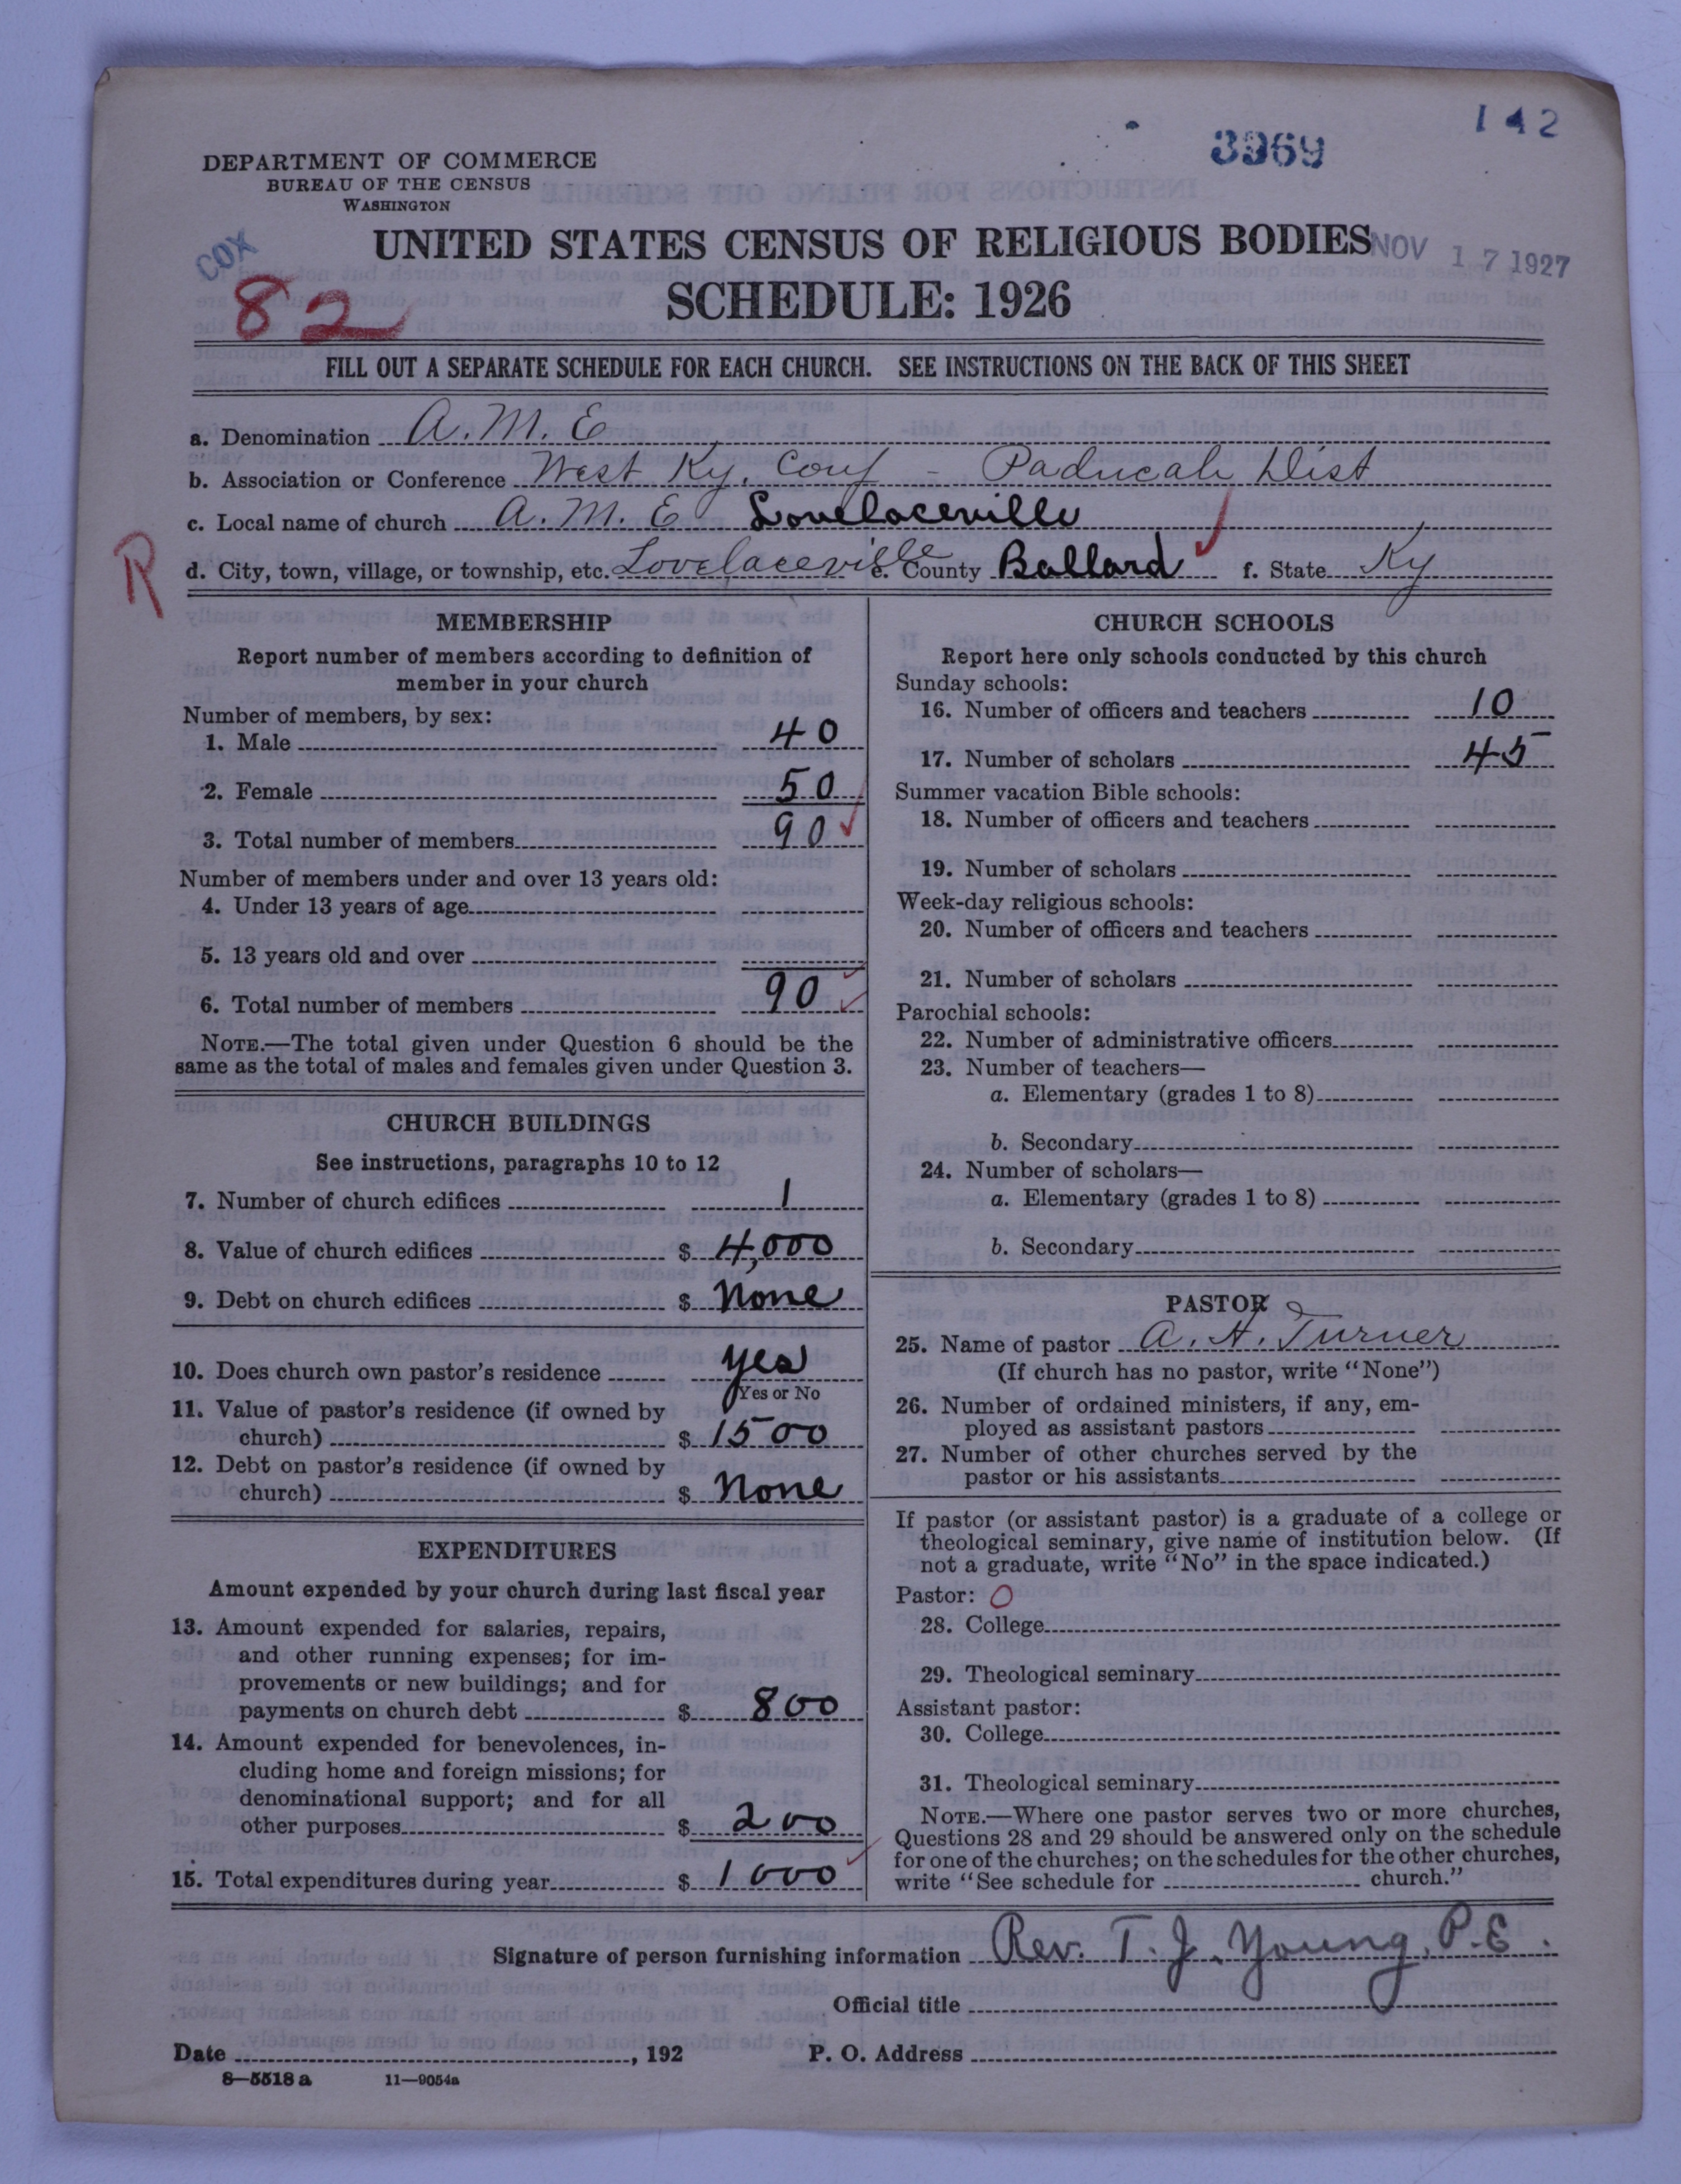 142
3969
DEPARTMENT OF COMMERCE
BUREAU OF THE CENSUS
WASHINGTON
COX
UNITED STATES CENSUS OF RELIGIOUS BODIES
NOV 17 1927
82
SCHEDULE: 1926
FILL OUT A SEPARATE SCHEDULE FOR EACH CHURCH. SEE INSTRUCTIONS ON THE BACK OF THIS SHEET
a. Denomination A.M.E
b. Association or Conference West Ky. Conf - Paducah Dist
c. Local name of church A.M.E Lovelaceville
R
d. City, town, village, or township, etc. Lovelaceville e. County Ballard f. State Ky
MEMBERSHIP
Report number of members according to definition of
member in your church
Number of members, by sex:
1. Male 40
2. Female 50
3. Total number of members 90
Number of members under and over 13 years old:
4. Under 13 years of age
5. 13 years old and over
6. Total number of members 90
NOTE.—The total given under Question 6 should be the
same as the total of males and females given under Question 3.
CHURCH BUILDINGS
See instructions, paragraphs 10 to 12
7. Number of church edifices 1
8. Value of church edifices $ 4,000
9. Debt on church edifices $ None
10. Does church own pastor's residence yes
Yes or No
11. Value of pastor's residence (if owned by
church) $ 1500
12. Debt on pastor's residence (if owned by
church) $ None
EXPENDITURES
Amount expended by your church during last fiscal year
13. Amount expended for salaries, repairs,
and other running expenses; for im-
provements or new buildings; and for
payments on church debt $ 800
14. Amount expended for benevolences, in-
cluding home and foreign missions; for
denominational support; and for all
other purposes $ 200
15. Total expenditures during year $ 1000
CHURCH SCHOOLS
Report here only schools conducted by this church
Sunday schools:
16. Number of officers and teachers 10
17. Number of scholars 45
Summer vacation Bible schools:
18. Number of officers and teachers
19. Number of scholars
Week-day religious schools:
20. Number of officers and teachers
21. Number of scholars
Parochial schools:
22. Number of administrative officers
23. Number of teachers—
a. Elementary (grades 1 to 8)
b. Secondary
24. Number of scholars—
a. Elementary (grades 1 to 8)
b. Secondary
PASTOR
25. Name of pastor A. H. Turner
(If church has no pastor, write "None")
26. Number of ordained ministers, if any, em-
ployed as assistant pastors
27. Number of other churches served by the
pastor or his assistants
If pastor (or assistant pastor) is a graduate of a college or
theological seminary, give name of institution below. (If
not a graduate, write "No" in the space indicated.)
Pastor: O
28. College
29. Theological seminary
Assistant pastor:
30. College
31. Theological seminary
NOTE.—Where one pastor serves two or more churches,
Questions 28 and 29 should be answered only on the schedule
for one of the churches; on the schedules for the other churches,
write "See schedule for church."
Signature of person furnishing information Rev. T. J. Young, P.E.
Official title
Date , 192 P. O. Address
8—5518 a 11—9054a